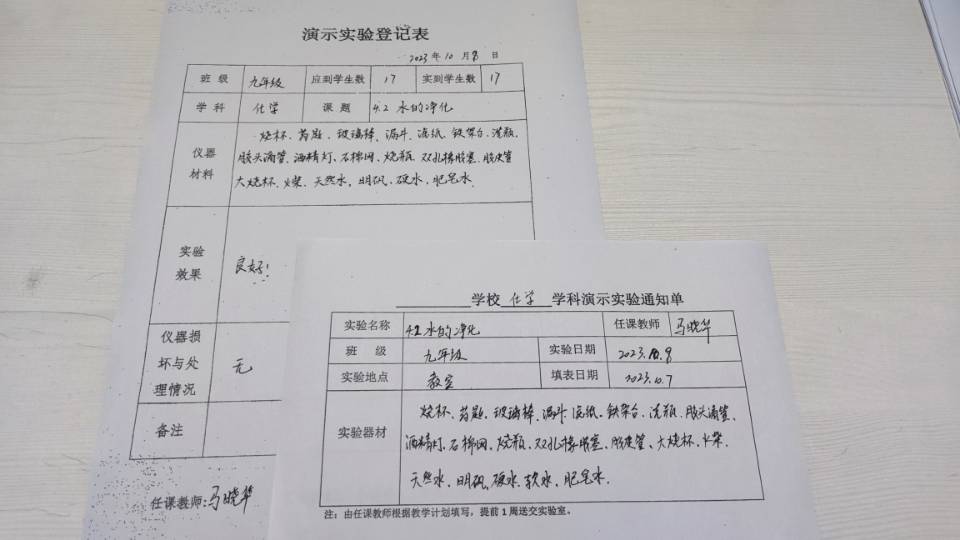 演示实验登记表
2023年10月8日
班级 九年级 应到学生数 17 实到学生数 17
学科 化学 课题 4.2 水的净化
仪器材料
烧杯、药匙、玻璃棒、漏斗、滤纸、铁架台、洗瓶、
胶头滴管、酒精灯、石棉网、烧瓶、双孔橡胶塞、胶皮管
大烧杯、火柴、天然水、明矾、硬水、肥皂水、
实验效果 良好!
仪器损坏与处理情况 无
备注
任课教师:马晓华
学校 化学 学科演示实验通知单
实验名称 4.2 水的净化 任课教师 马晓华
班级 九年级 实验日期 2023.10.8
实验地点 教室 填表日期 2023.10.7
实验器材
烧杯、药匙、玻璃棒、漏斗、滤纸、铁架台、洗瓶、胶头滴管、
酒精灯、石棉网、烧瓶、双孔橡胶塞、胶皮管、大烧杯、火柴、
天然水、明矾、硬水、软水、肥皂水.
注:由任课教师根据教学计划填写,提前1周送交实验室。